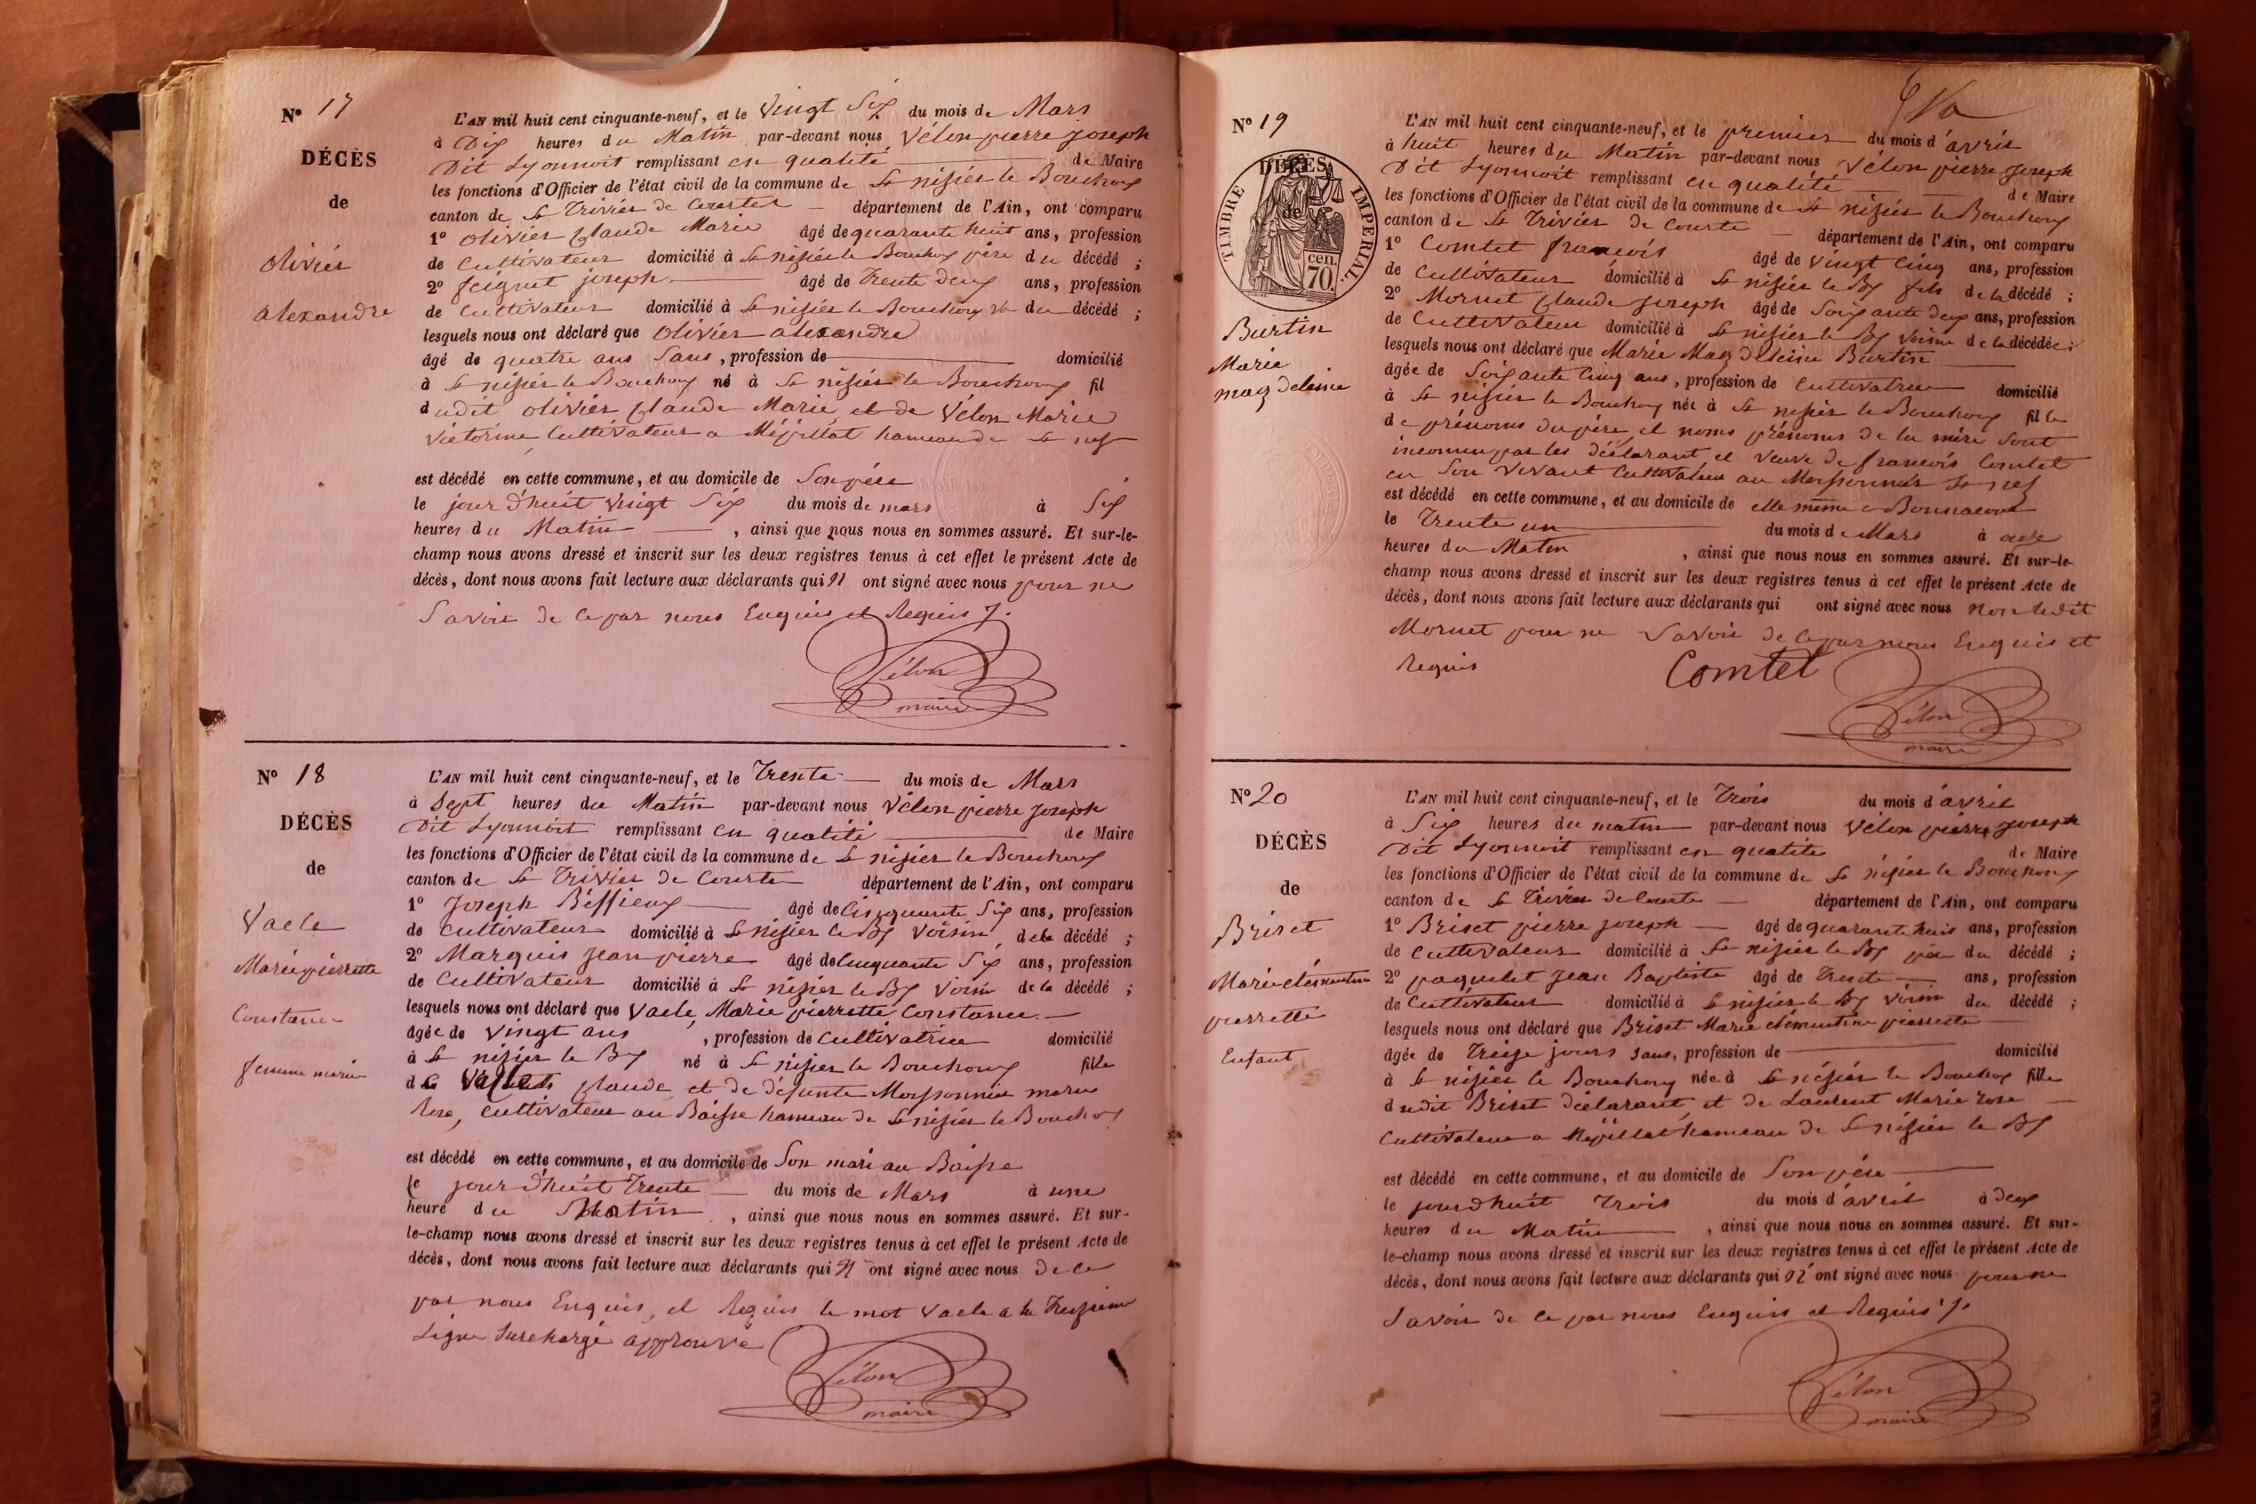 N° 17
DÉCÈS
de
Olivier
alexandre
L'AN mil huit cent cinquante-neuf, et le vingt Six du mois de Mars
à Dix heures du Matin par-devant nous Vélon pierre joseph
Dit Lyonnoit remplissant en qualité de Maire
les fonctions d'Officier de l'état civil de la commune de St nisier le Bouchoux
canton de St Trivier de Courtes département de l'Ain, ont comparu
1° Olivier Claude Marie âgé de quarante huit ans, profession
de Cultivateur domicilié à St nisier le Bouchoux père du décédé ;
2° feignet joseph âgé de Trente deux ans, profession
de Cultivateur domicilié à St nisier le Bouchoux du décédé ;
lesquels nous ont déclaré que Olivier alexandre
âgé de quatre ans Sans, profession de domicilié
à St nisier le Bouchoux né à St nisier le Bouchoux fil
dudit Olivier Claude Marie et de Vélon Marie
Victorine, Cultivateur a Mépillat hameau de St
est décédé en cette commune, et au domicile de Son père
le jour d'huit vingt Six du mois de mars à Six
heures du Matin , ainsi que nous nous en sommes assuré. Et sur-le-
champ nous avons dressé et inscrit sur les deux registres tenus à cet effet le présent Acte de
décès, dont nous avons fait lecture aux déclarants qui n ont signé avec nous pour ne
Savoir de ce par nous Enquis et Requis
Vélon
maire
N° 18
DÉCÈS
de
Vacle
Marie pierrette
Constance
femme
L'AN mil huit cent cinquante-neuf, et le Trente du mois de Mars
à Sept heures du Matin par-devant nous Vélon pierre joseph
Dit Lyonnoit remplissant en qualité de Maire
les fonctions d'Officier de l'état civil de la commune de St nisier le Bouchoux
canton de St Trivier de Courtes département de l'Ain, ont comparu
1° Joseph Béffieux âgé de Cinquante Six ans, profession
de Cultivateur domicilié à St nisier le Bx voisin de la décédé ;
2° Marquis Jean pierre âgé de Cinquante Six ans, profession
de Cultivateur domicilié à St nisier le Bx voisin de la décédé ;
lesquels nous ont déclaré que Vacle Marie pierrette Constance
âgée de vingt ans , profession de Cultivatrice domicilié
à St nisier le Bx né à St nisier le Bouchoux fille
de Claude et de défunte Moissonnier marie
Rose, cultivateur au Baisse hameau de St nisier le Bouchoux
est décédé en cette commune, et au domicile de Son mari au Baisse
le jour d'huit Trente du mois de Mars à une
heure du Matin , ainsi que nous nous en sommes assuré. Et sur-
le-champ nous avons dressé et inscrit sur les deux registres tenus à cet effet le présent Acte de
décès, dont nous avons fait lecture aux déclarants qui n ont signé avec nous de ce
par nous Enquis, et Requis le mot Vacle a la Treizieme
Ligne Surchargé approuvé
Vélon
maire
N° 19
DÉCÈS
de
TIMBRE IMPERIAL
cen.
70.
Burtin
Marie
magdeleine
L'AN mil huit cent cinquante-neuf, et le premier du mois d'avril
à huit heures du Matin par-devant nous Vélon pierre joseph
Dit Lyonnoit remplissant en qualité de Maire
les fonctions d'Officier de l'état civil de la commune de St nisier le Bouchoux
canton de St Trivier de Courte département de l'Ain, ont comparu
1° Comtet francois âgé de vingt Cinq ans, profession
de Cultivateur domicilié à St nisier le Bx fils de la décédé ;
2° Mornet Claude joseph âgé de Soixante deux ans, profession
de Cultivateur domicilié à St nisier le Bx voisin de la décédée ;
lesquels nous ont déclaré que Marie Magdeleine Burtin
âgée de Soixante Cinq ans, profession de Cultivatrice domicilié
à St nisier le Bouchoux née à St nisier le Bouchoux fille
de prénoms du père, et noms prénoms de la mère Sont
inconnu par les déclarant et veuve de francois Comtet
en Son vivant Cultivateur au St
est décédé en cette commune, et au domicile de elle même a
le Trente un du mois de Mars à
heures du Matin , ainsi que nous nous en sommes assuré. Et sur-le-
champ nous avons dressé et inscrit sur les deux registres tenus à cet effet le présent Acte de
décès, dont nous avons fait lecture aux déclarants qui ont signé avec nous non ledit
Mornet pour ne Savoir de ce par nous Enquis et
Requis
Comtet
Vélon
maire
N° 20
DÉCÈS
de
Briset
Marie clémentine
pierrette
Enfant
L'AN mil huit cent cinquante-neuf, et le Trois du mois d'avril
à Six heures du matin par-devant nous Vélon pierre joseph
Dit Lyonnoit remplissant en qualité de Maire
les fonctions d'Officier de l'état civil de la commune de St nisier le Bouchoux
canton de St Trivier de Courte département de l'Ain, ont comparu
1° Briset pierre joseph âgé de quarante huit ans, profession
de Cultivateur domicilié à St nisier le Bx père du décédé ;
2° paquelet Jean Baptiste âgé de Trente ans, profession
de Cultivateur domicilié à St nisier le Bx voisin du décédé ;
lesquels nous ont déclaré que Briset Marie clémentine pierrette
âgée de Treize jours Sans, profession de domicilié
à St nisier le Bouchoux née à St nisier le Bouchoux fille
dudit Briset déclarant, et de Laurent Marie rose
Cultivateur a Mépillat hameau de St nisier le Bx
est décédé en cette commune, et au domicile de Son père
le jour d huit Trois du mois d'avril à deux
heures du Matin , ainsi que nous nous en sommes assuré. Et sur-
le-champ nous avons dressé et inscrit sur les deux registres tenus à cet effet le présent Acte de
décès, dont nous avons fait lecture aux déclarants qui n ont signé avec nous pour ne
Savoir de ce par nous Enquis et Requis
Vélon
maire